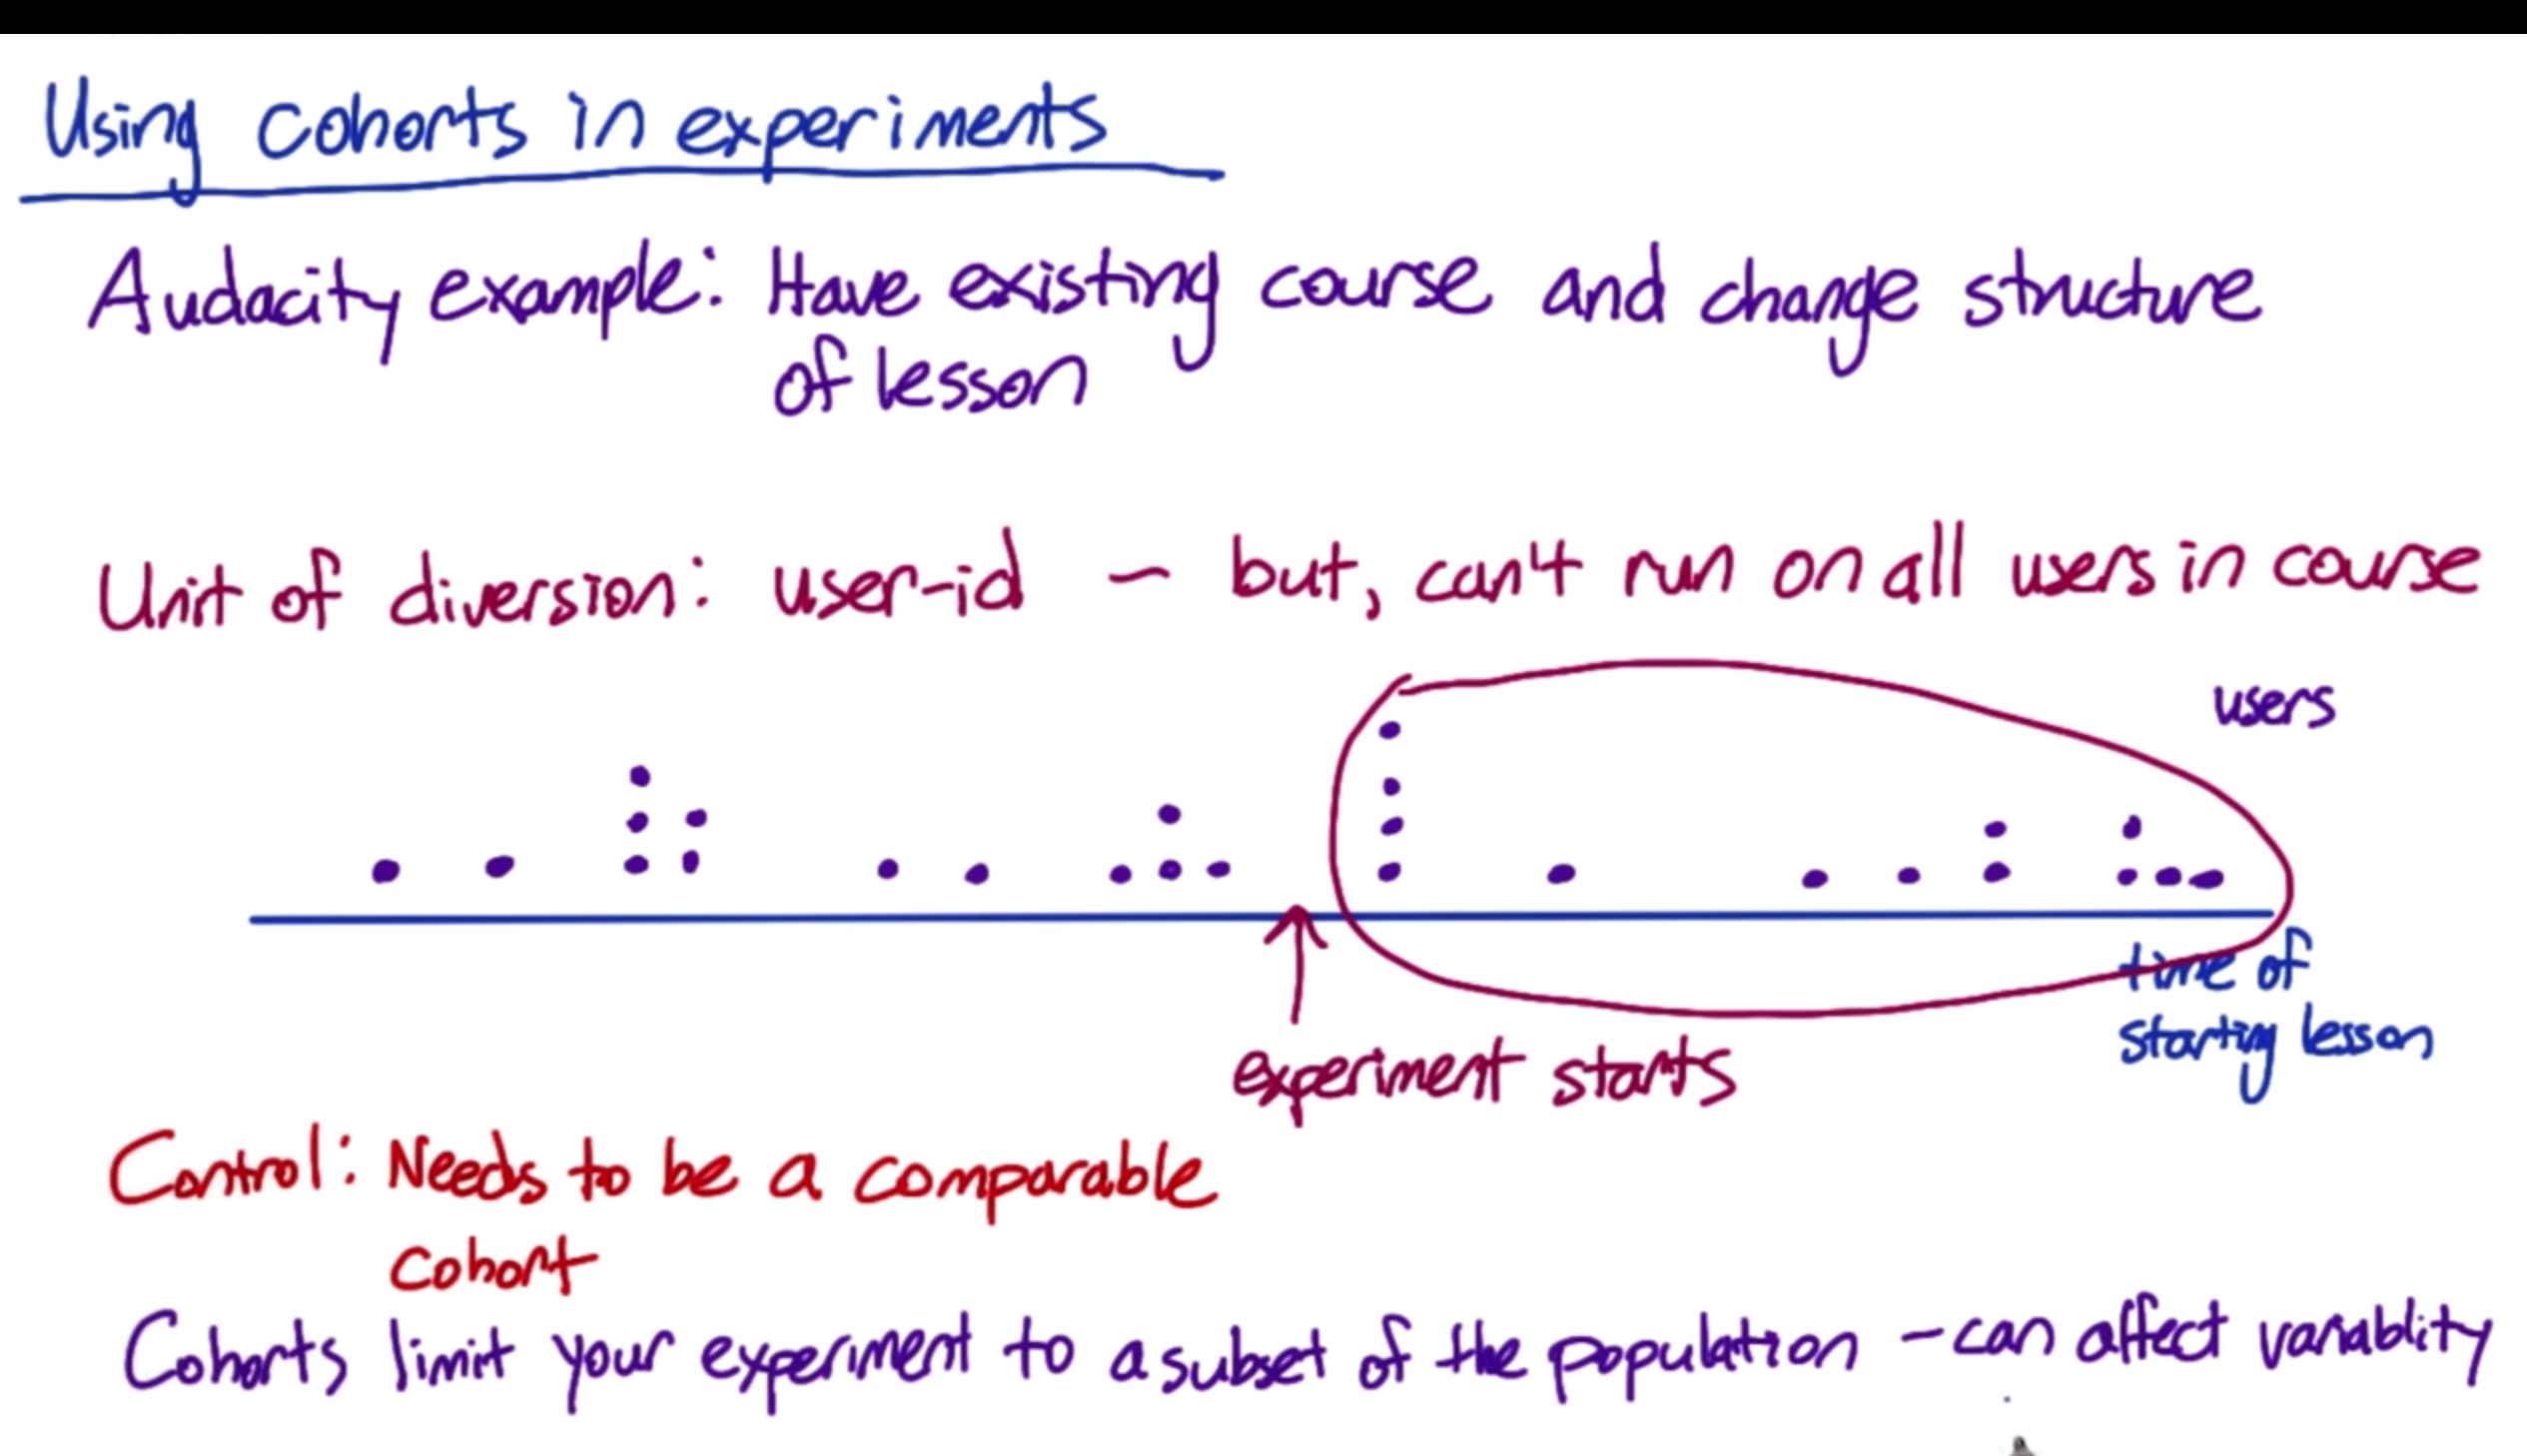 Using cohorts in experiments
Audacity example: Have existing course and change structure
of lesson
Unit of diversion: user-id - but, can't run on all users in course
users
time of
starting lesson
experiment starts
Control: Needs to be a comparable
cohort
Cohorts limit your experiment to a subset of the population - can affect variablity